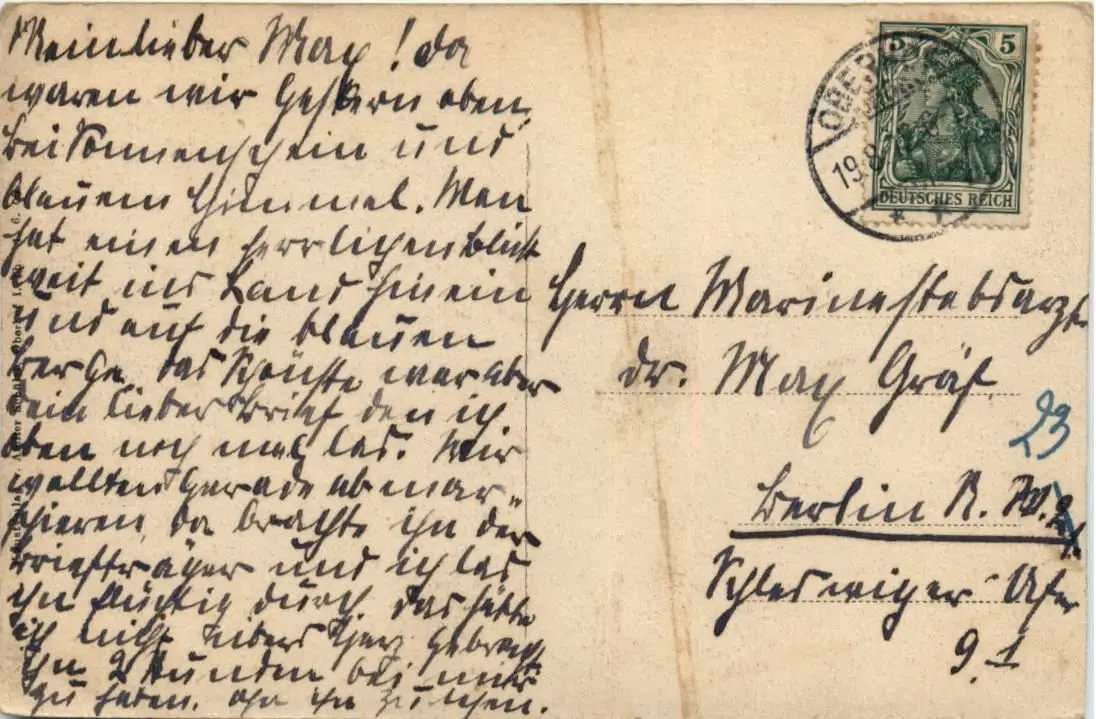 Mein lieber Max! Da
waren wir gestern oben,
bei Sonnenschein und
blauem Himmel. Man
hat einen herrlichen Blick
weit ins Land hinein
und auf die blauen
Berge. Das Schönste war aber
Dein lieber Brief den ich
oben noch mal las. Wir
wollten gerade abmar-
schieren, da brachte ihn der
Briefträger und ich las
ihn flüchtig durch. Das hätte
ich nicht übers Herz gebracht
ihn 2 Stunden bei mir
zu haben, ohne ihn zu lesen.
5
DEUTSCHES REICH
19.8
Herrn Marinestabsarzt
Dr. Max Gräf
23
Berlin N. W.
Schleswiger Ufer
9. I